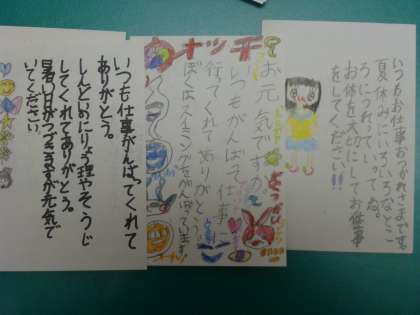 いつもお仕事おつかれさまです。
夏休みにいろいろなとこ
ろにつれていってね。
お体を大切にしてお仕事
をしてください!!
お元気ですか。
いつもがんばって仕事に
行ってくれてありがとう。
ぼくはスイミングをがんばっています
いつも仕事がんばってくれて
ありがとう。
しんどいのにりょう理やそうじ
してくれてありがとう。
暑い日がつづきますが元気で
いてください。